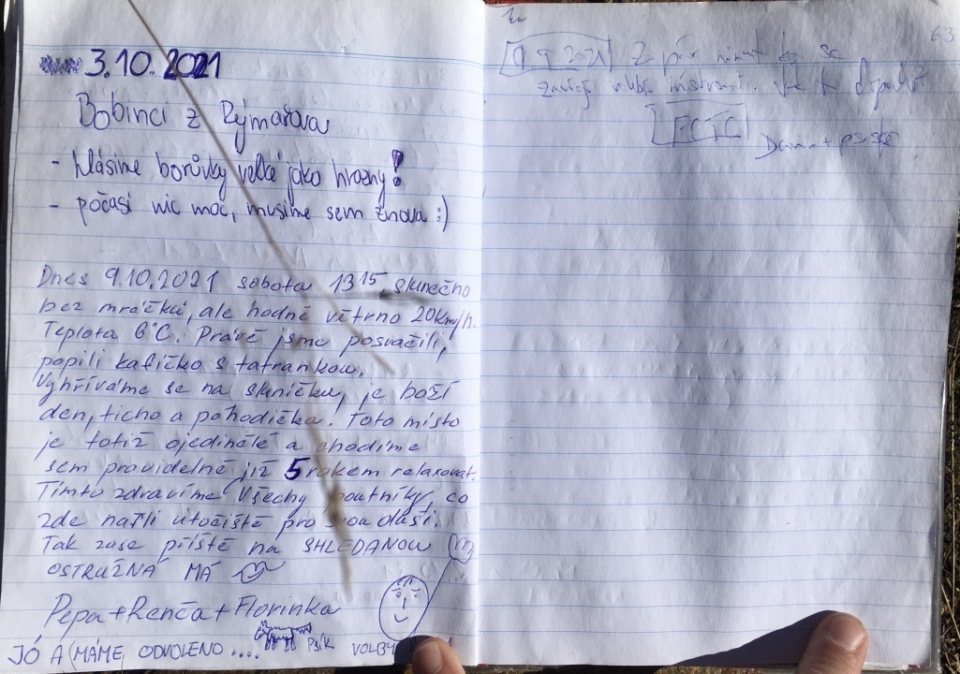 3.10.2021
Bobinci z Rýmařova
- hlásíme borůvky velké jako hrozny!
- počasí nic moc, musíme sem znova :)
Dnes 9.10.2021 sobota 13 15, slunečno
bez mráčků, ale hodně větrno 20km/h.
Teplota 6°C. Právě jsme posvačili,
popili kafíčko s tatrankou.
Vyhříváme se na sluníčku, je boží
den, ticho a pohodička. Toto místo
je totiž ojedinělé a chodíme
sem pravidelně již 5 rokem relaxovat.
Tímto zdravíme všechny poutníky, co
zde našli útočiště pro duši.
Tak zase příště na SHLEDANOU
OSTRUŽNÁ MÁ
Pepa+Renča+Florinka
Psík
JÓ A MÁME ODVOLENO .... VOLBY
63
9.2021 Za pár minut by se